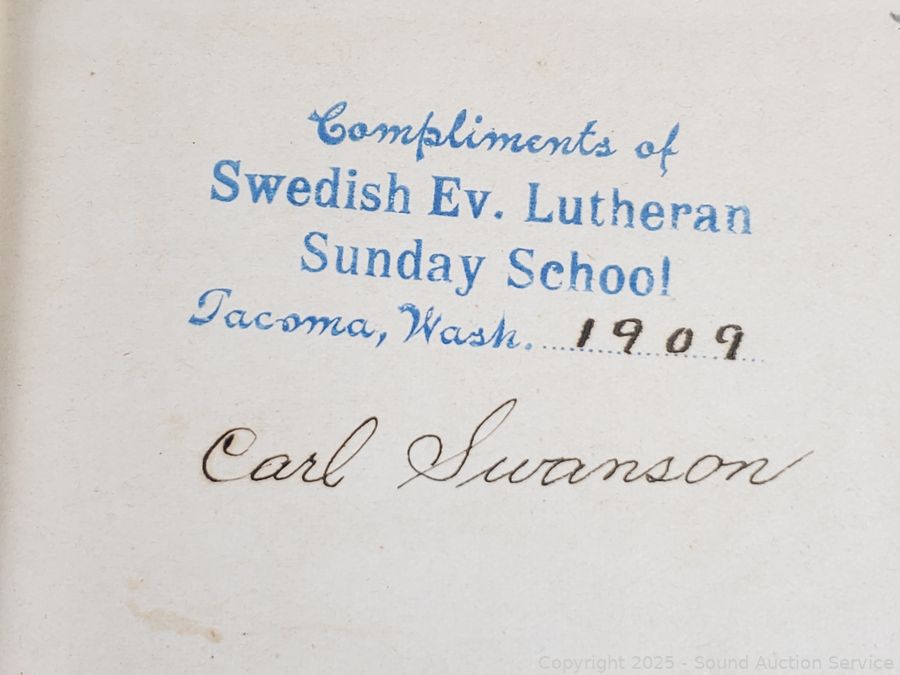 Compliments of
Swedish Ev. Lutheran
Sunday School
Tacoma, Wash. 1909
Carl Swanson
Copyright 2025 - Sound Auction Service